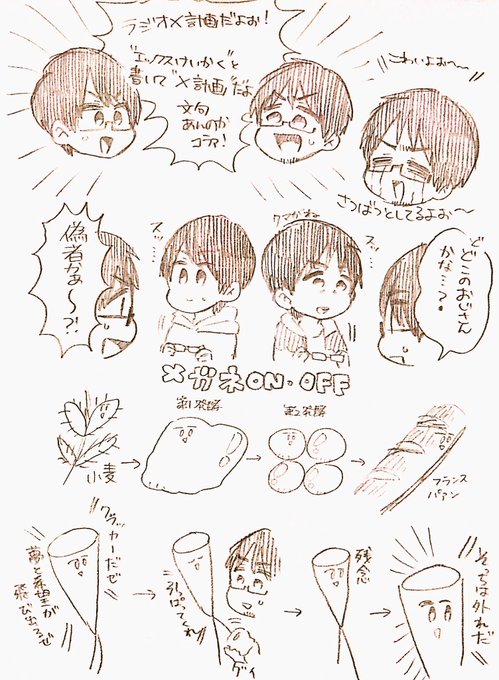 ラジオ×計画だよお!
"エックスけいかく"と
書いて"×計画"だよ
文句
あんのか
コラァ!
こわいよぉ〜〜
さつばつとしてるよぉ〜
偽者かぁ〜?!
スッ…
クマがね
スッ…
ど
どこのおじさん
かな…?
メガネON・OFF
小麦
第1発酵
第2発酵
フランス
パァン
クラッカーだぜ
夢と希望が
飛び出るぜ
引っぱってくれ!!
グイ
残念
そっちは外れだ